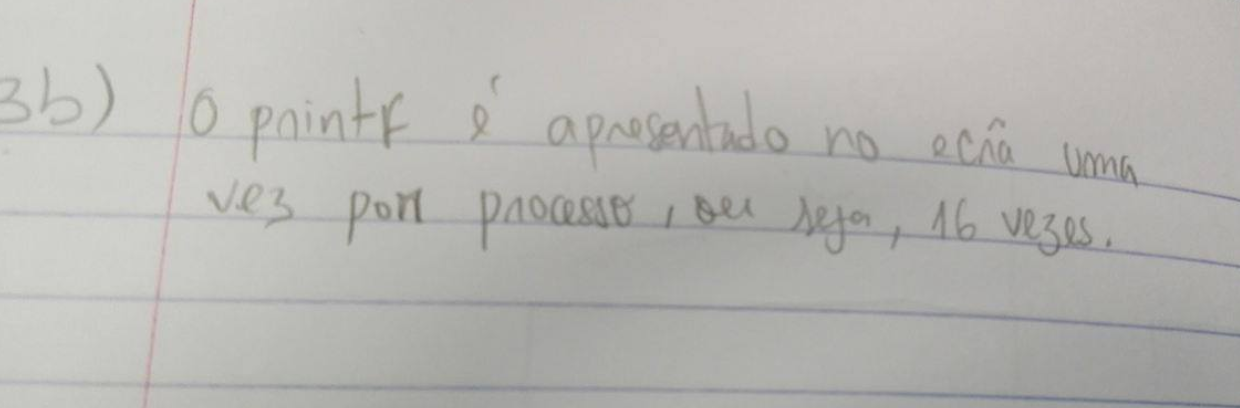 3b) O printf é apresentado no ecrã uma
vez por processo, ou seja, 16 vezes.